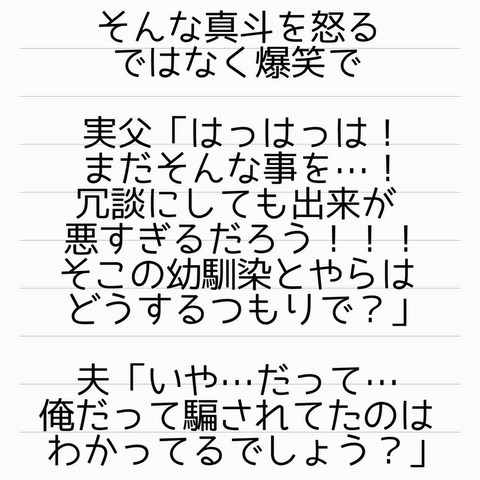 そんな真斗を怒る
ではなく爆笑で
実父「はっはっは！
まだそんな事を…！
冗談にしても出来が
悪すぎるだろう！！！
そこの幼馴染とやらは
どうするつもりで？」
夫「いや…だって…
俺だって騙されてたのは
わかってるでしょう？」